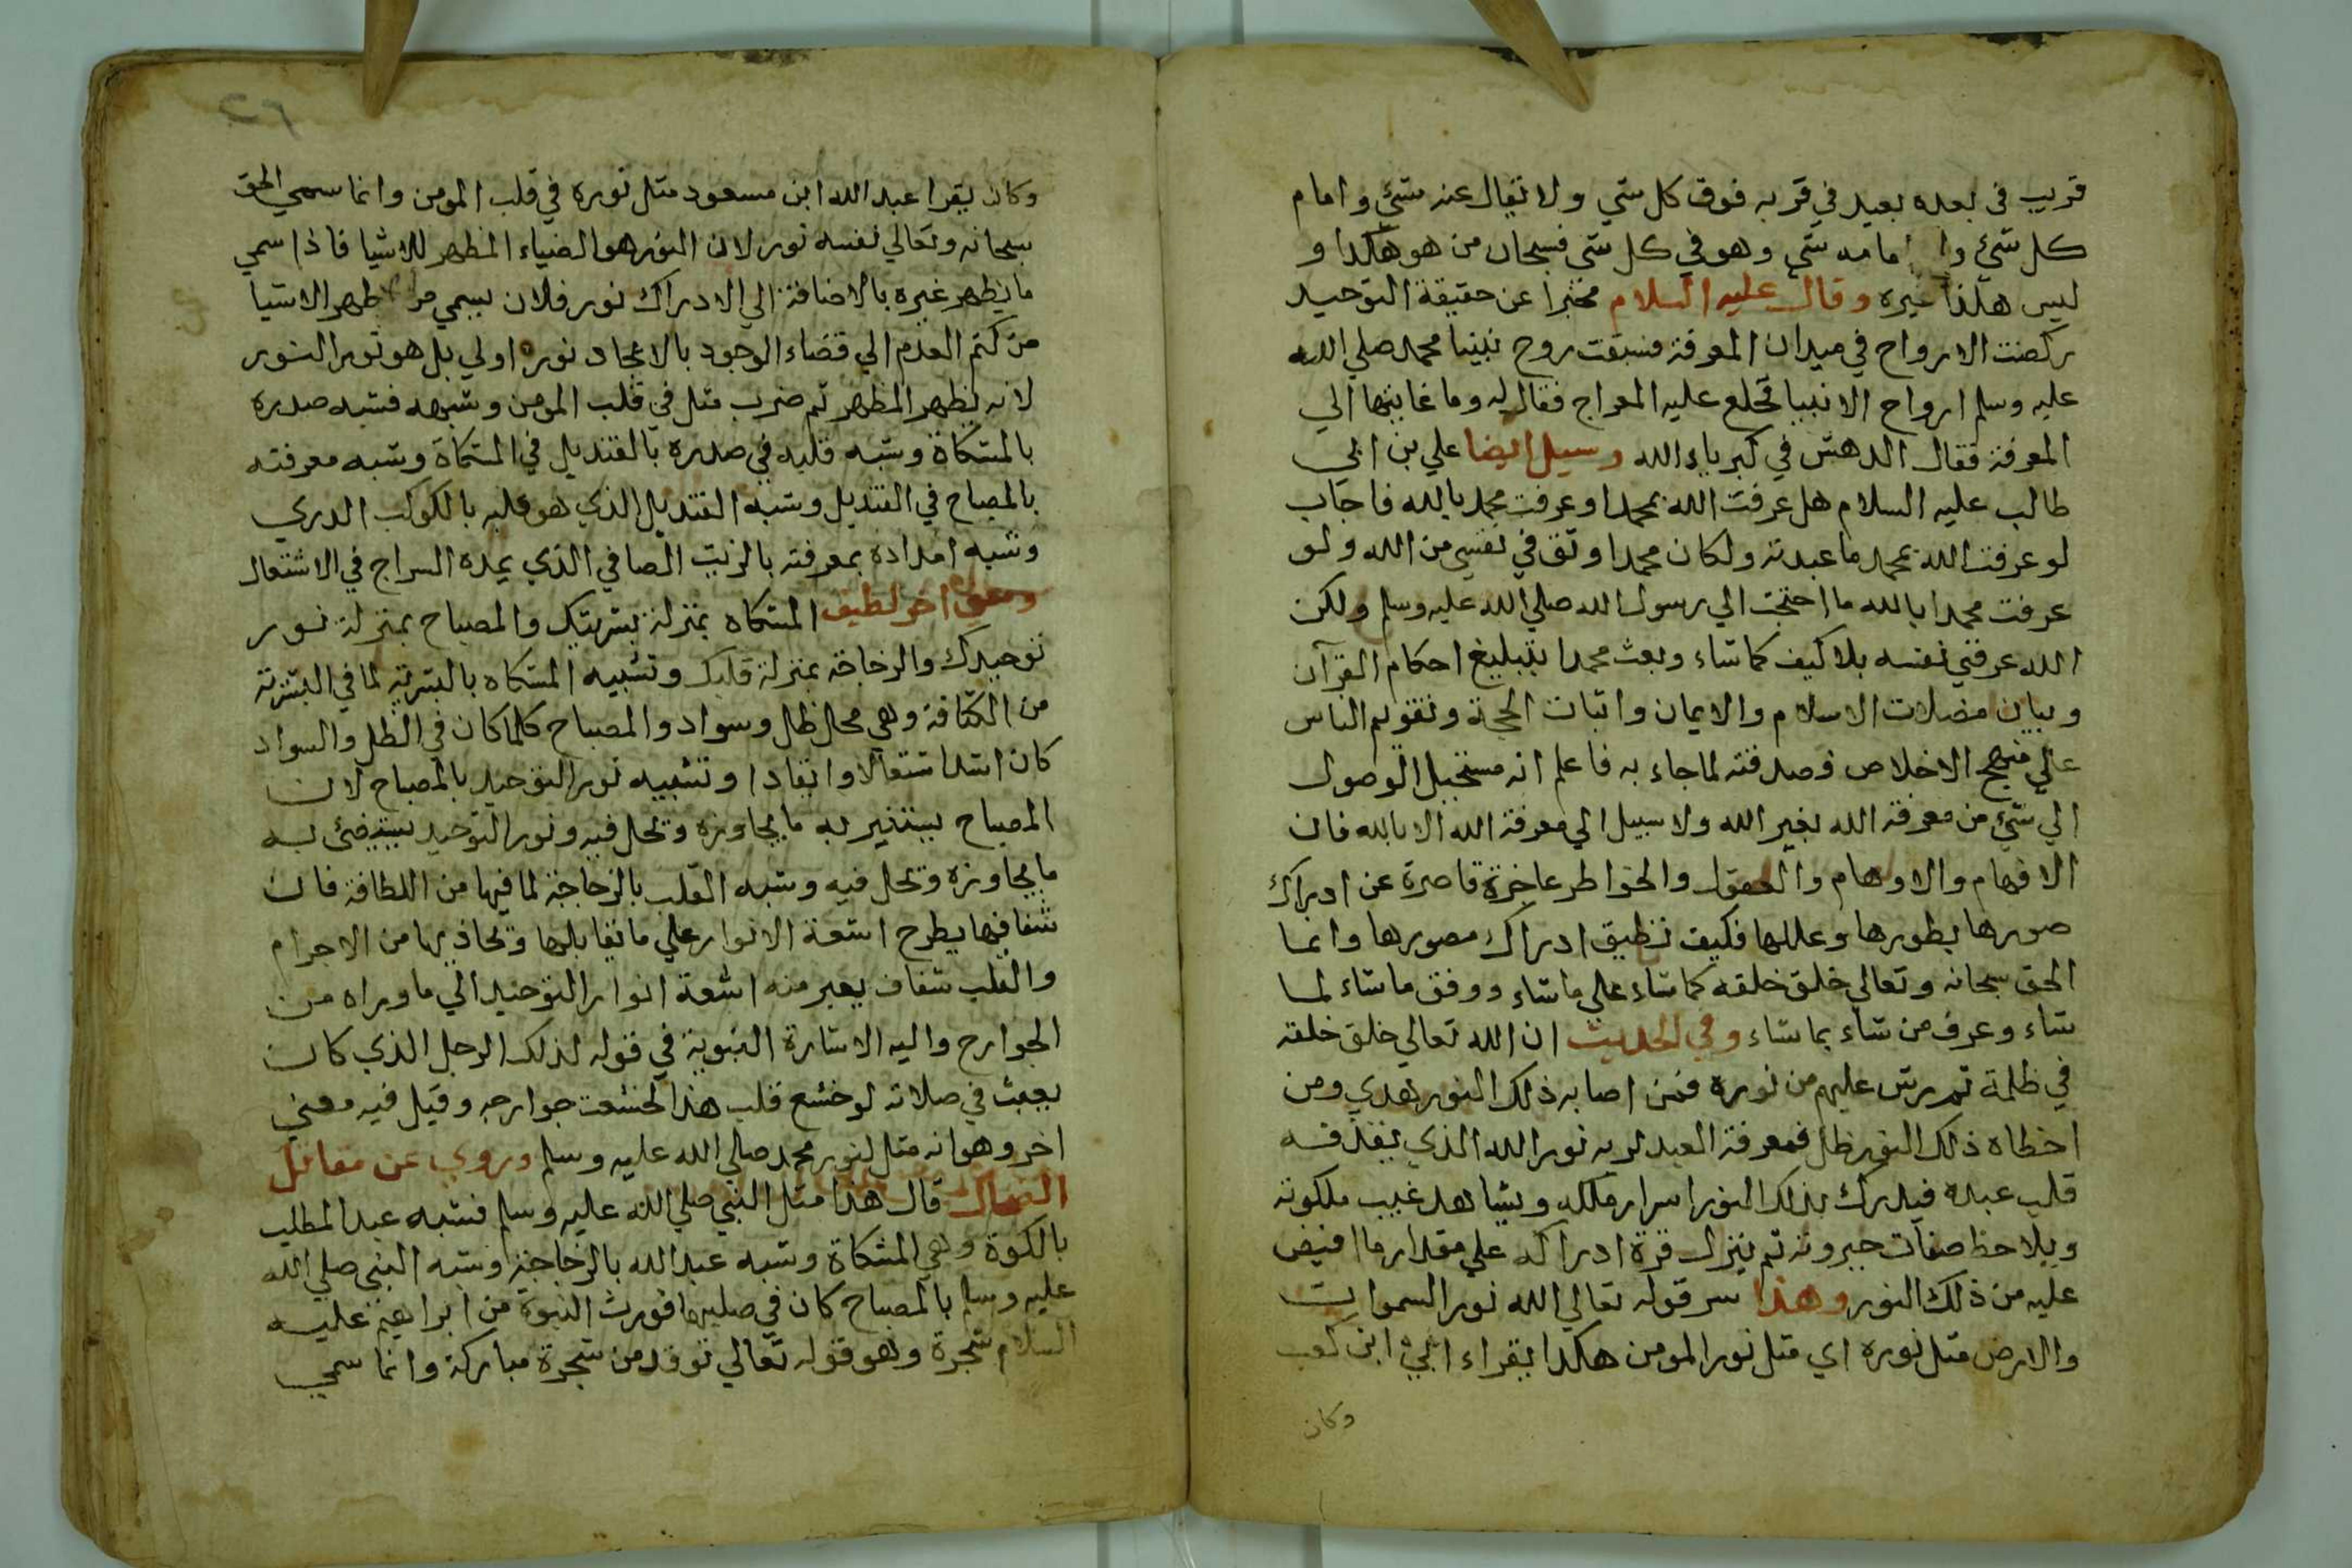 قريب في بعده بعيد في قربه فوق كل شي ولا تقال عنه شئ وامام
كل شئ وا امامه شي وهو في كل شي فسبحان من هو هكذا و
ليس هكذا غيره وقال عليه السلام مخبرا عن حقيقة التوحيد
ركضت الارواح في ميدان المعرفة فسبقت روح نبينا محمد صلي الله
عليه وسلم ارواح الانبيا فخلع عليه المعراج فقال له وما غايتها الي
المعرفة فقال الدهش في كبرياء الله وسيل ايضا علي بن ابي
طالب عليه السلام هل عرفت الله بمحمدا وعرفت محمد بالله فاجاب
لو عرفت الله بمحمد ما عبدته ولكان محمدا وثق في نفسي من الله ولو
عرفت محمدا بالله ما احتجت الي رسول الله صلي الله عليه وسلم ولكن
الله عرفني نفسه بلا كيف كما شاء وبعث محمدا بتبليغ احكام القرآن
وبيان مضلات الاسلام والايمان واثبات الحجة وتقويم الناس
علي منهج الاخلاص فصدقته لما جاء به فاعلم انه مستحيل الوصول
الي شئ من معرفة الله بغير الله ولا سبيل الي معرفة الله الا بالله فان
الافهام والاوهام والعقول والخواطر عاجزة قاصرة عن ادراك
صورها بطورها وعللها فكيف تطيق ادراك مصورها وانما
الحق سبحانه وتعالي خلق خلقه كما شاء علي ما شاء ووفق ما شاء لما
شاء وعرف من شاء بما شاء وفي الحديث ان الله تعالي خلق خلقه
في ظلمة ثم رش عليهم من نوره فمن اصابه ذلك النور هدي ومن
اخطاه ذلك النور ظل فمعرفة العبد لربه نور الله الذي يقذفه
قلب عبده فيدرك بذلك النور اسرار ملكه ويشاهد غيب ملكوته
ويلاحظ صفات جبروته ثم ينزل قوة ادراكه علي مقدار ما افيض
عليه من ذلك النور وهذا سر قوله تعالي الله نور السموات
والارض مثل نوره اي مثل نور المومن هكذا يقراء ابي ابن كعب
وكان
وكان يقرا عبد الله ابن مسعود مثل نوره في قلب المومن وانما سمي الحق
سبحانه وتعالي نفسه نور لان النور هو الضياء المظهر للاشيا فاذا سمي
ما يظهر غيره بالاضافة الي الادراك نور فلان يسمي من اظهر الاشيا
من كتم العدم الي فضاء الوجود بالايجاد نورا اولي بل هو نور النور
لانه يظهر المظهر ثم ضرب مثل في قلب المومن وشبهه فشبه صدره
بالمشكاة وشبه قلبه في صدره بالقنديل في المشكاة وشبه معرفته
بالمصباح في القنديل وشبه القنديل الذي هو قلبه بالكوكب الدري
وشبه امداده بمعرفته بالزيت الصافي الذي يمده السراج في الاشتعال
ومعني اخر لطيف المشكاه بمنزلة بشريتك والمصباح بمنزلة نور
توحيدك والزجاجة بمنزلة قلبك وتشبيه المشكاه بالبشرية لما في البشرية
من الكثافة وهي محال ظل وسواد والمصباح كلما كان في الظل والسواد
كان اشد اشتعالا واتقادا وتشبيه نور التوحيد بالمصباح لان
المصباح يستنير به ما يجاوره وتحل فيه ونور التوحيد يستضئ به
ما يجاوره وتحل فيه وشبه القلب بالزجاجة لما فيها من اللطافة فان
شفافها يطرح اشعة الانوار علي ما تقابلها وتحاذيها من الاجرام
والقلب شفاف يعبر منه اشعة انوار التوحيد الي ما وراه من
الجوارح واليه الاشارة النبوية في قوله لذلك الرجل الذي كان
يعبث في صلاته لو خشع قلب هذا لخشعت جوارحه وقيل فيه معني
اخر وهو انه مثل لنور محمد صلي الله عليه وسلم وروي عن مقاتل
الضحاك قال هذا مثل النبي صلي الله عليه وسلم فشبه عبد المطلب
بالكوة وهي المشكاة وشبه عبد الله بالزجاجة وشبه النبي صلي الله
عليه وسلم بالمصباح كان في صلبهما فورث النبوة من ابراهيم عليه
السلام شجرة وهو قوله تعالي توقد من شجرة مباركة وانما سمي